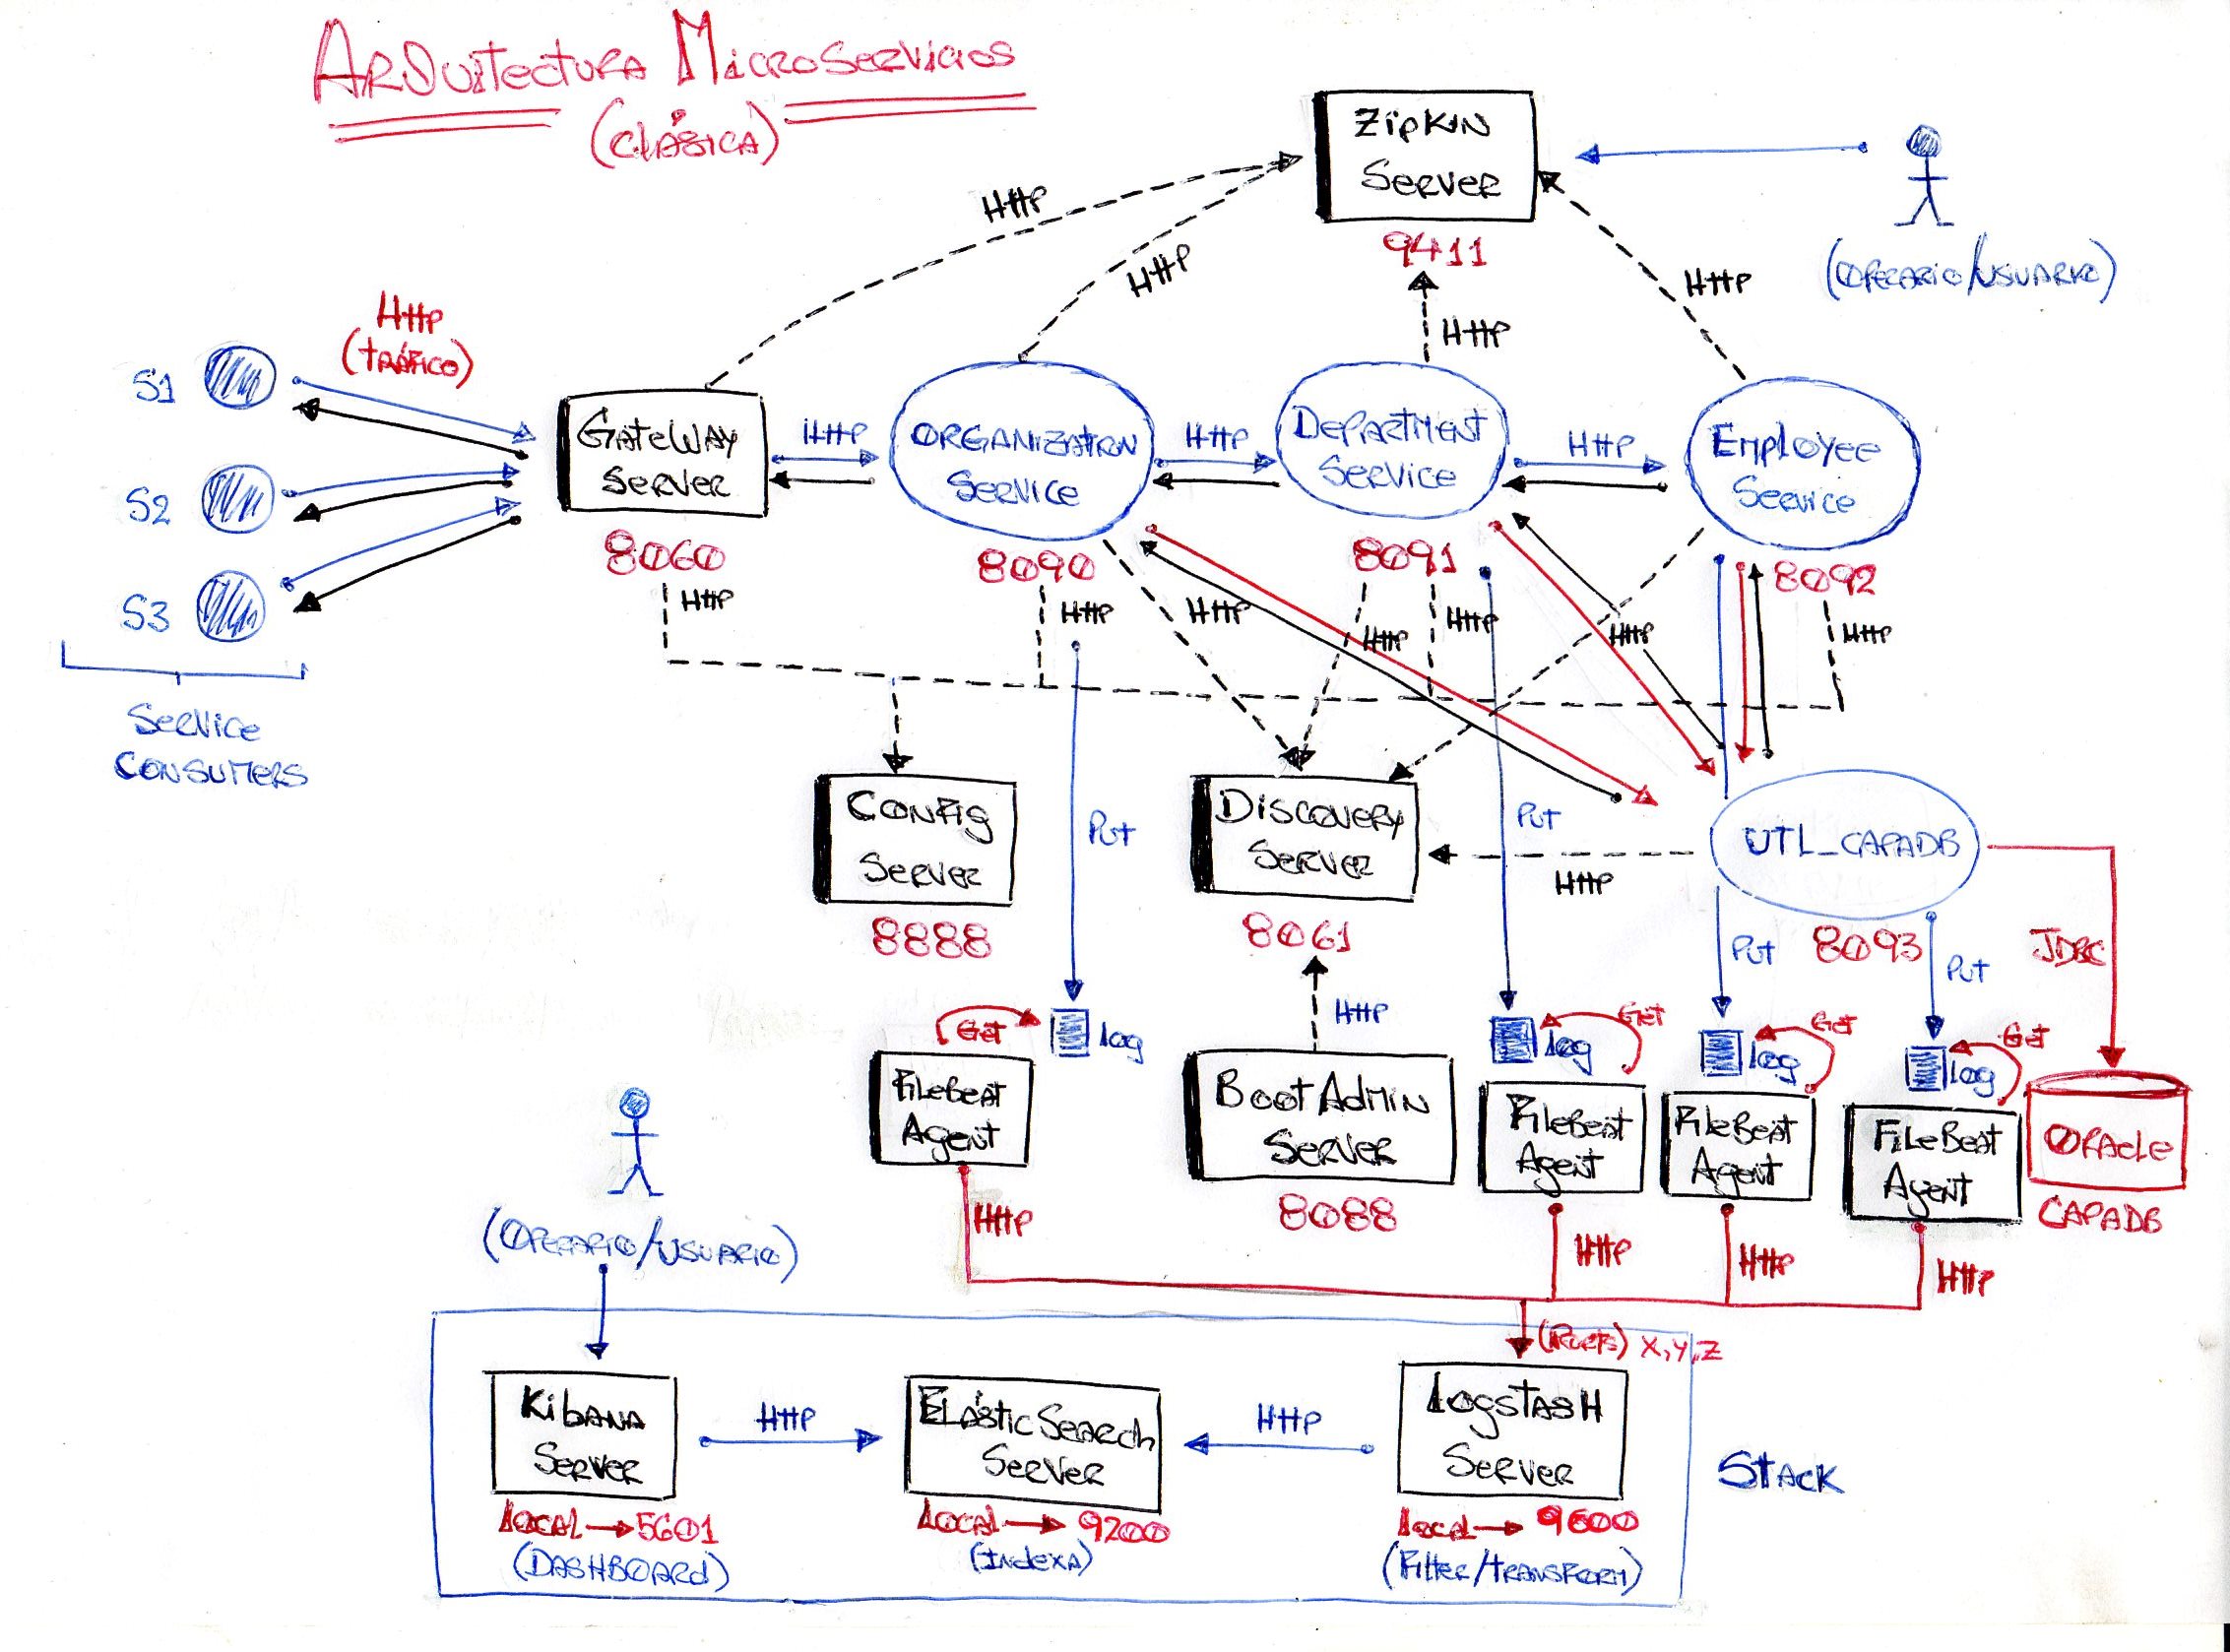 ARQUITECTURA MICROSERVICIOS
(CLÁSICA)
ZIPKIN
SERVER
9411
(OPERARIO/USUARIO)
HTTP
HTTP
HTTP
HTTP
HTTP
(TRÁFICO)
S1
S2
S3
SERVICE
CONSUMERS
GATEWAY
SERVER
8060
HTTP
ORGANIZATION
SERVICE
8090
HTTP
DEPARTMENT
SERVICE
8091
HTTP
EMPLOYEE
SERVICE
8092
HTTP
HTTP
HTTP
HTTP
HTTP
HTTP
HTTP
CONFIG
SERVER
8888
PUT
DISCOVERY
SERVER
8061
HTTP
PUT
UTL_CAPADB
8093
PUT
PUT
JDBC
HTTP
GET
LOG
FILEBEAT
AGENT
HTTP
BOOT ADMIN
SERVER
8088
GET
LOG
FILEBEAT
AGENT
HTTP
GET
LOG
FILEBEAT
AGENT
HTTP
GET
LOG
FILEBEAT
AGENT
HTTP
ORACLE
CAPADB
(OPERARIO/USUARIO)
(PORTS) X,Y,Z
KIBANA
SERVER
LOCAL → 5601
(DASHBOARD)
HTTP
ELÁSTICSEARCH
SERVER
LOCAL → 9200
(INDEXA)
HTTP
LOGSTASH
SERVER
LOCAL → 9600
(FILTER/TRANSFORM)
STACK